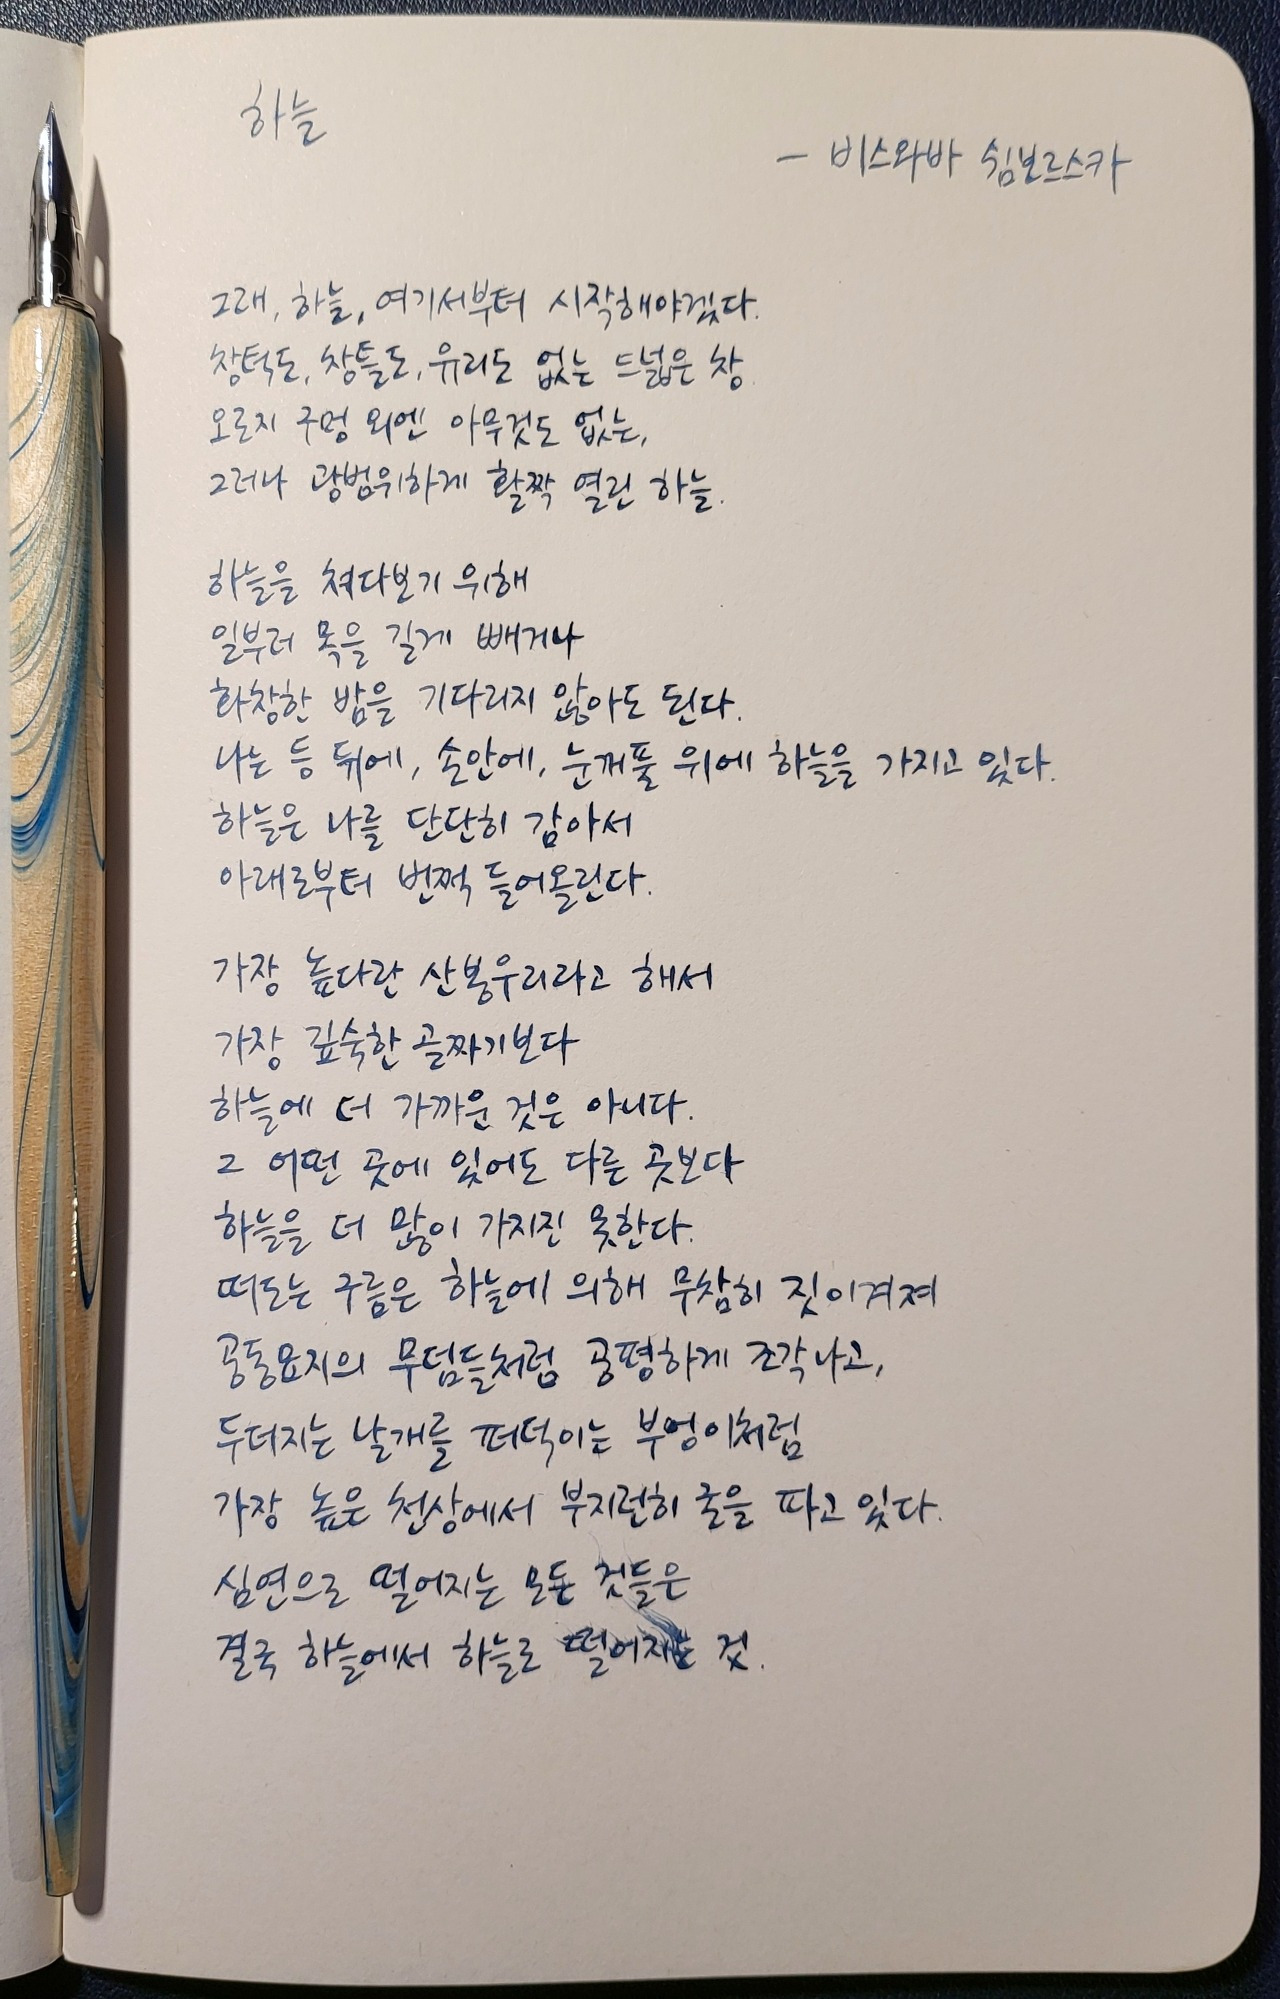 하늘
- 비스와바 쉼보르스카
그래, 하늘, 여기서부터 시작해야겠다.
창턱도, 창틀도, 유리도 없는 드넓은 창.
오로지 구멍 외엔 아무것도 없는,
그러나 광범위하게 활짝 열린 하늘.
하늘을 쳐다보기 위해
일부러 목을 길게 빼거나
화창한 밤을 기다리지 않아도 된다.
나는 등 뒤에, 손안에, 눈꺼풀 위에 하늘을 가지고 있다.
하늘은 나를 단단히 감아서
아래로부터 번쩍 들어올린다.
가장 높다란 산봉우리라고 해서
가장 깊숙한 골짜기보다
하늘에 더 가까운 것은 아니다.
그 어떤 곳에 있어도 다른 곳보다
하늘을 더 많이 가지진 못한다.
떠도는 구름은 하늘에 의해 무참히 짓이겨져
공동묘지의 무덤들처럼 공평하게 조각나고,
두더지는 날개를 퍼덕이는 부엉이처럼
가장 높은 천상에서 부지런히 굴을 파고 있다.
심연으로 떨어지는 모든 것들은
결국 하늘에서 하늘로 떨어지는 것.